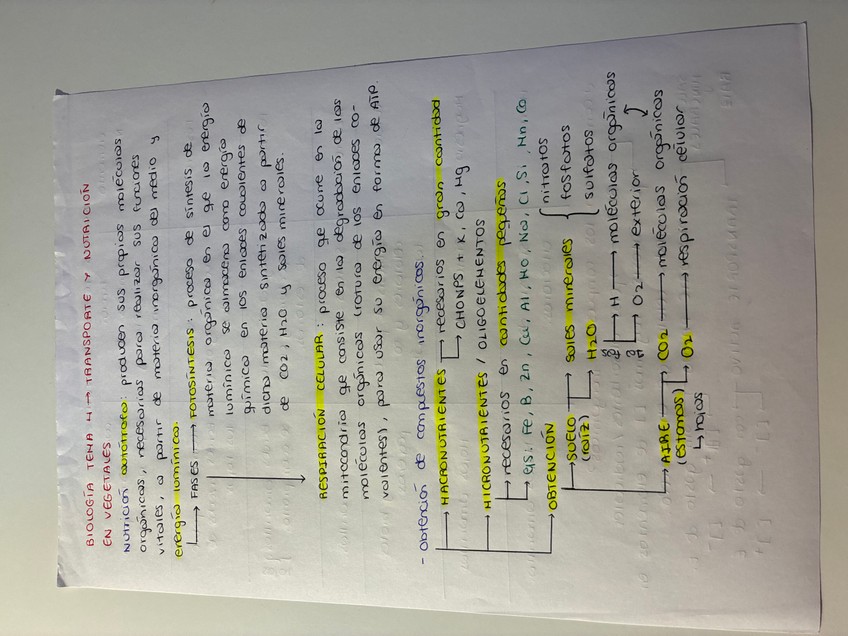 BIOLOGÍA TEMA 4 → TRANSPORTE Y NUTRICIÓN
EN VEGETALES
Nutrición autótrofa: producen sus propias moléculas
orgánicas, necesarias para realizar sus funciones
vitales, a partir de materia inorgánica del medio y
energía lumínica.
→ FASES → FOTOSÍNTESIS: proceso de síntesis de
materia orgánica en el qe la energía
lumínica se almacena como energía
química en los enlaces covalentes de
dicha materia sintetizada a partir
de CO2, H2O y sales minerales.
RESPIRACIÓN CELULAR: proceso qe ocurre en la
mitocondria qe consiste en la degradación de las
moléculas orgánicas (rotura de los enlaces co-
valentes), para usar su energía en forma de ATP.
- Obtención de compuestos inorgánicos.
→ MACRONUTRIENTES → necesarios en gran cantidad
→ CHONPS + K, Ca, Mg
→ MICRONUTRIENTES / OLIGOELEMENTOS
→ necesarios en cantidades pequeñas
→ Ejs: Fe, B, Zn, Cu, Al, Mo, Na, Cl, Si, Mn, Co
→ OBTENCIÓN
→ SUELO → sales minerales { nitratos
(raíz) fosfatos
sulfatos
→ H2O
→ H → moléculas orgánicas
→ O2 → exterior
→ AIRE → CO2 → moléculas orgánicas
(estomas) → O2 → respiración celular
→ hojas